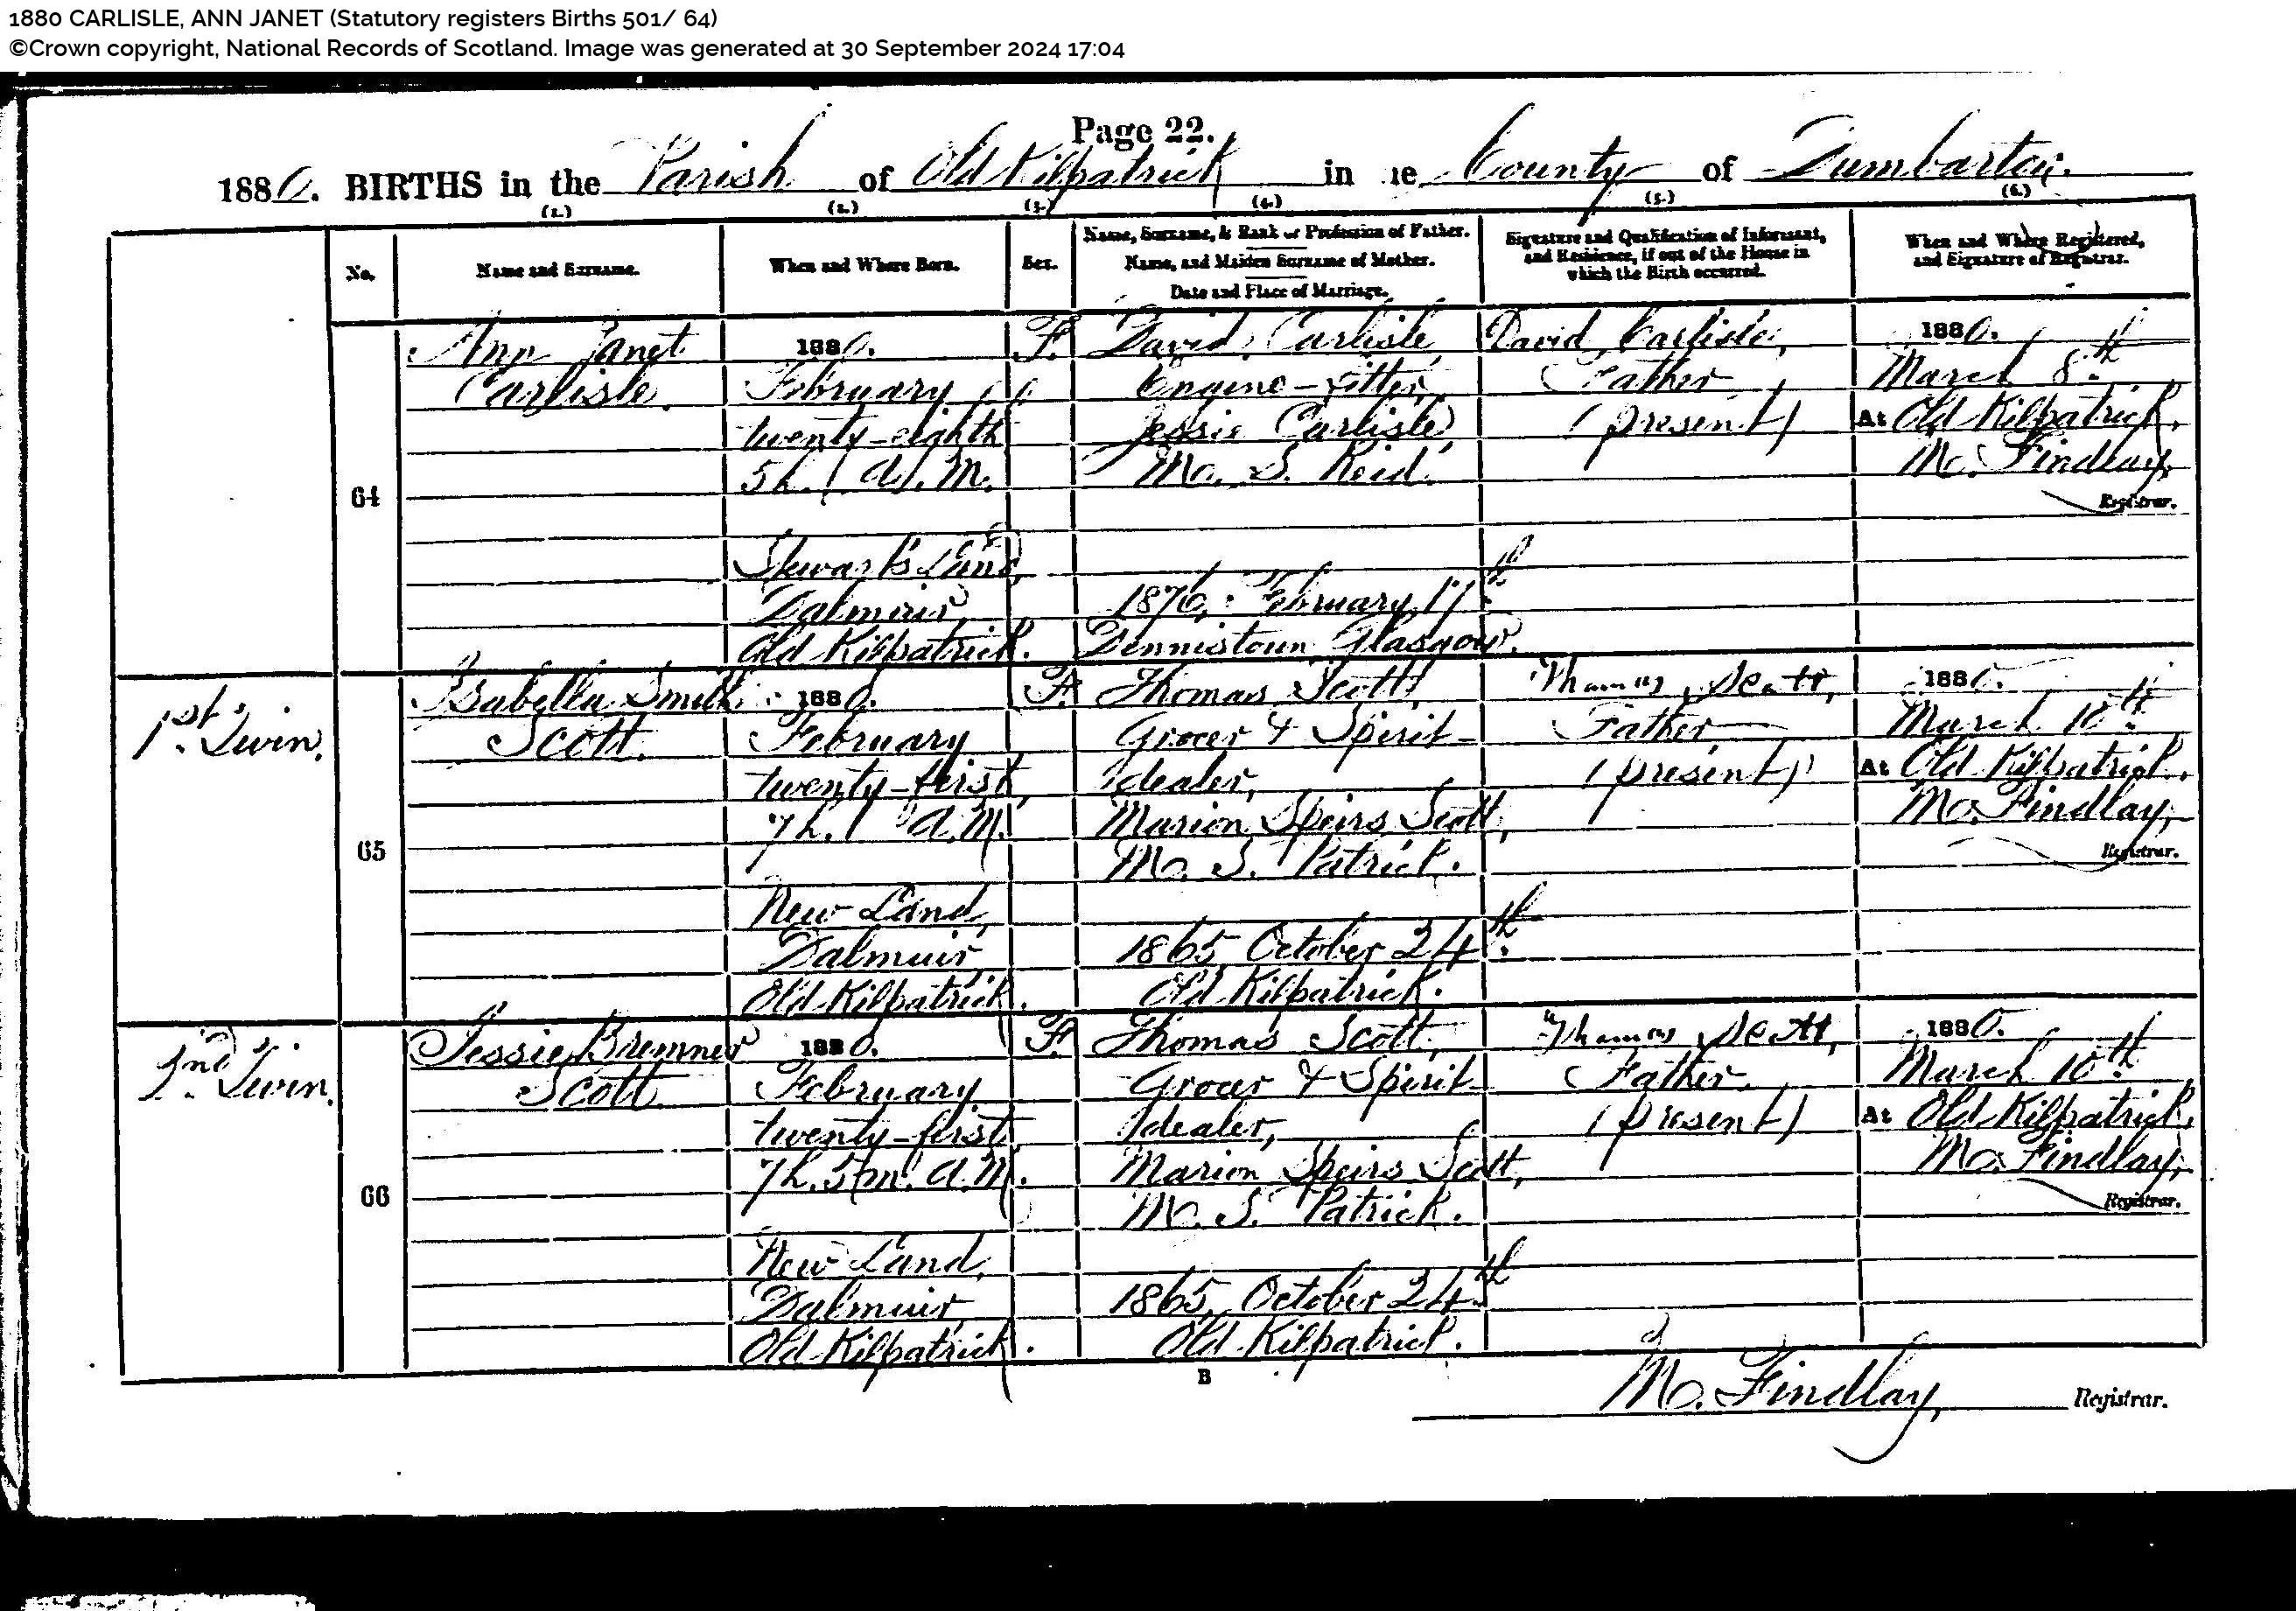 1880 CARLISLE, ANN JANET (Statutory registers Births 501/ 64)
©Crown copyright, National Records of Scotland. Image was generated at 30 September 2024 17:04
Page 22.
1880. BIRTHS in the Parish of Old Kilpatrick in County of Dumbarton.
(1.) (2.) (3.) (4.) (5.) (6.)
No.
Name and Surname.
When and Where Born.
Sex.
Name, Surname, & Rank or Profession of Father.
Name, and Maiden Surname of Mother.
Date and Place of Marriage.
Signature and Qualification of Informant,
and Residence, if out of the House in
which the Birth occurred.
When and Where Registered,
and Signature of Registrar.
64
Ann Janet
Carlisle.
1880.
February
twenty-eighth
5h. A.M.
Stewart's Land,
Dalmuir
Old Kilpatrick.
F.
David Carlisle,
Engine-fitter,
Jessie Carlisle
M. S. Reid.
1876, February 17th
Dennistoun Glasgow.
David Carlisle,
Father
(present)
1880.
March 8th
At Old Kilpatrick,
M. Findlay,
Registrar.
1st Twin.
65
Isabella Smith
Scott.
1880.
February
twenty-first,
7h. A.M.
New Land,
Dalmuir,
Old Kilpatrick.
F.
Thomas Scott,
Grocer & Spirit
dealer,
Marion Speirs Scott,
M. S. Patrick.
1865, October 24th.
Old Kilpatrick.
Thomas Scott,
Father
(present)
1880.
March 10th
At Old Kilpatrick,
M. Findlay,
Registrar.
2nd Twin.
66
Jessie Bremner
Scott
1880.
February
twenty-first,
7h. 5m. A.M.
New Land,
Dalmuir,
Old Kilpatrick.
F.
Thomas Scott,
Grocer & Spirit
dealer,
Marion Speirs Scott,
M. S. Patrick.
1865, October 24th
Old Kilpatrick.
Thomas Scott,
Father.
(present)
1880.
March 10th
At Old Kilpatrick,
M. Findlay,
Registrar.
B
M. Findlay, Registrar.